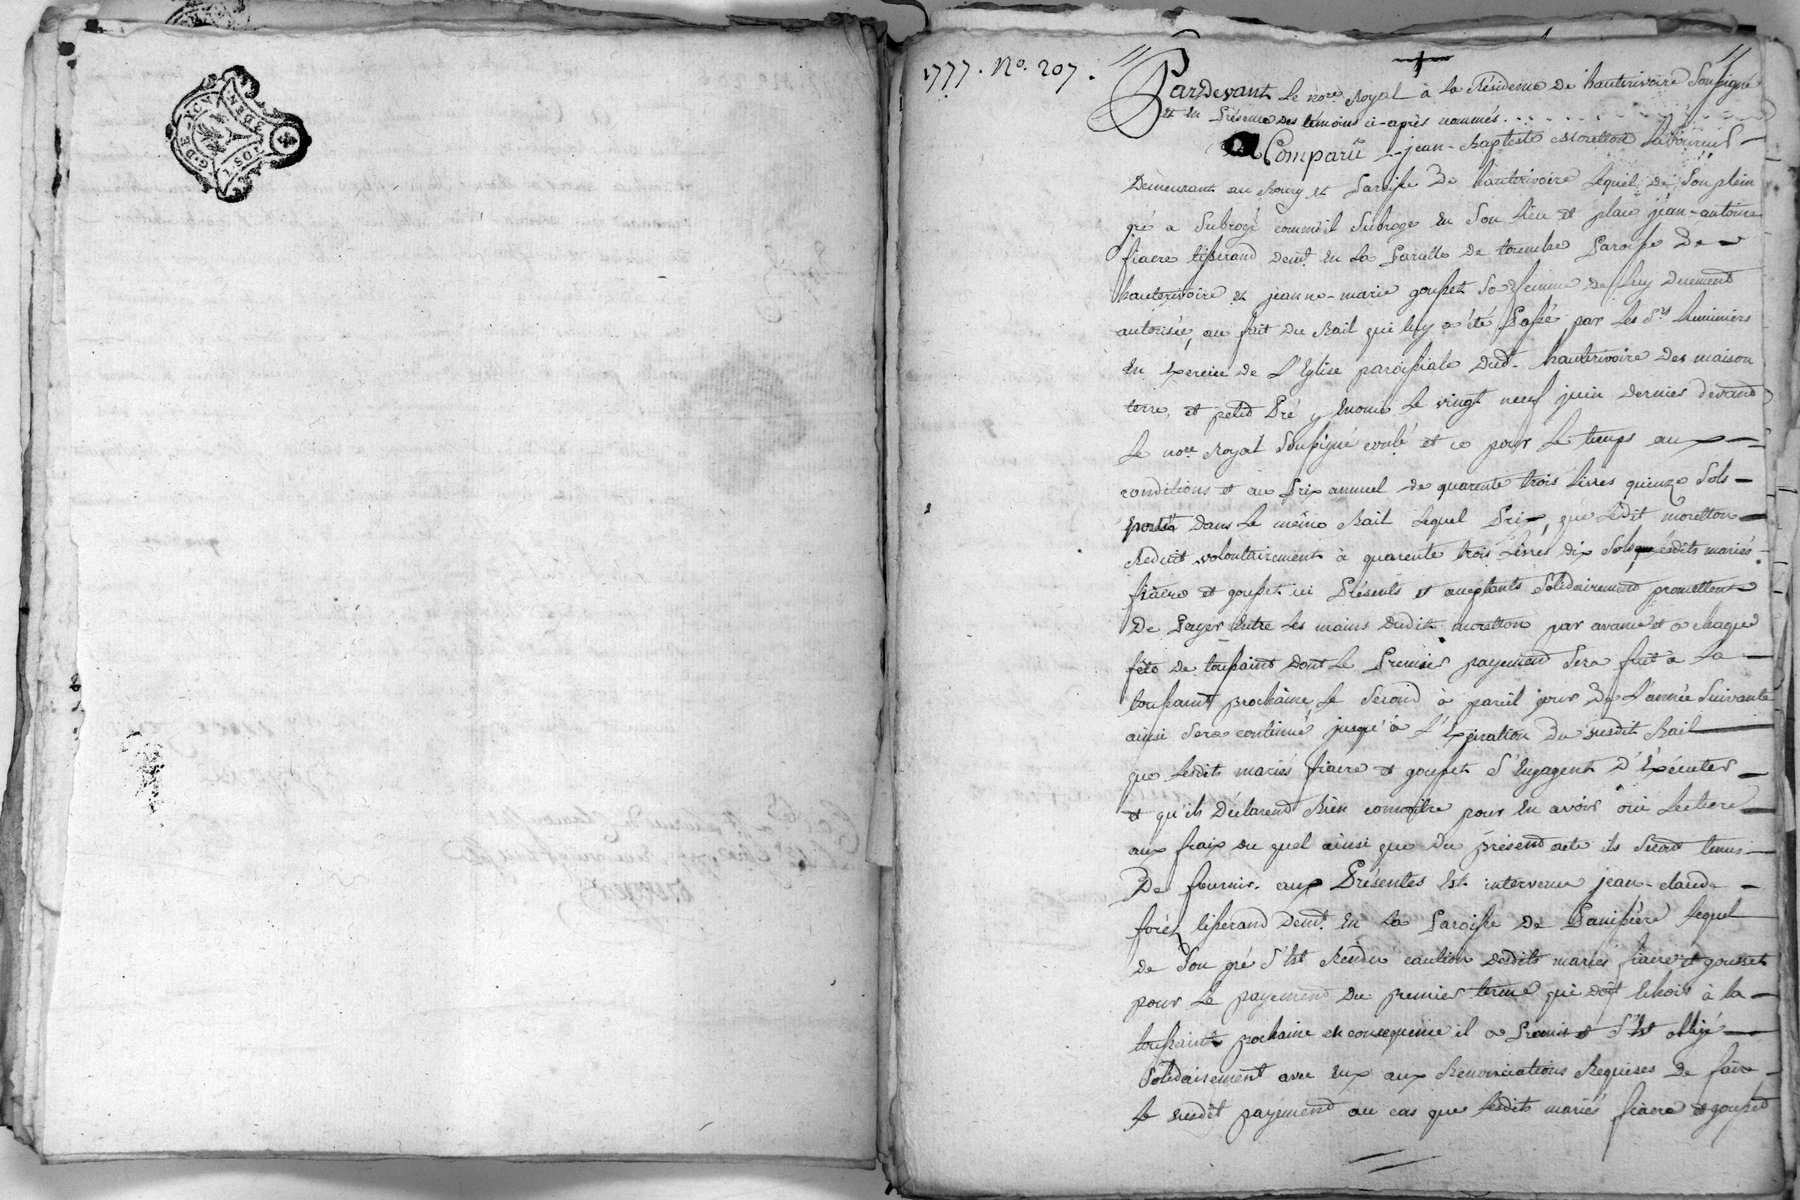 G. DE LYON
1777. No. 207.
Pardevant Le nore. Royal à La Résidence De hauterivoire Soussigné
et En Présence Des témoins ci-après nommés....
a Comparû jean-Baptiste Morellon Laboureur
Demeurant au Bourg et Paroisse De hauterivoire Lequel de Son plein
gré a Subrogé comme il Subroge En Son Lieu et place jean-antoine
fiacre tisserand demt. En La Parcelle De Paroisse De
hauterivoire et jeanne-marie gousset Sa femme De Luy Duement
autorisée, au fait Du Bail qui luy a été Passé par Les Srs. Luminiers
En Exercice De L'Eglise paroissiale Dudt. hauterivoire Des maison
terre, et petit Pré y Enoncé Le vingt neuf juin Dernier devant
Le nore. Royal Soussigné conlé et ce pour Le temps aux
conditions et au Prix annuel De quarente trois Livres quinze Sols
portés Dans Le même Bail Lequel Prix, que Ledit morellon
Reduit volontairement à quarente trois Livres dix Sols que Lesdits mariés
fiacre et gousset ici Présents et acceptants Solidairement promettent
De Payer Entre Les mains Dudit morellon par avance et a chaque
fête De toussaint Dont Le Premier payement Sera fait à La
toussaint prochaine Le Second à pareil jour De L'année Suivante
ainsi Sera continué jusqu'à L'Expiration Du susdit Bail
que Lesdits mariés fiacre et gousset S'Engagent D'Exécuter
et qu'ils Déclarent Bien connoître pour En avoir oüi Lecture
aux fraix Du quel ainsi que Du présend acte ils Seront tenus
De fournir. aux Présentes Est intervenu jean-claude
forêt tisserand Demt. En La Paroisse De Panissière Lequel
De Son gré S'Est Rendu caution Desdits mariés fiacre et gousset
pour Le payement Du premier terme qui doit Echoir à la
toussaint prochaine en consequence il a Promis et S'Est obligé
Solidairement avec Eux aux Renonciations Requises De faire
Le susdit payement au cas que Lesdits mariés fiacre et gousset